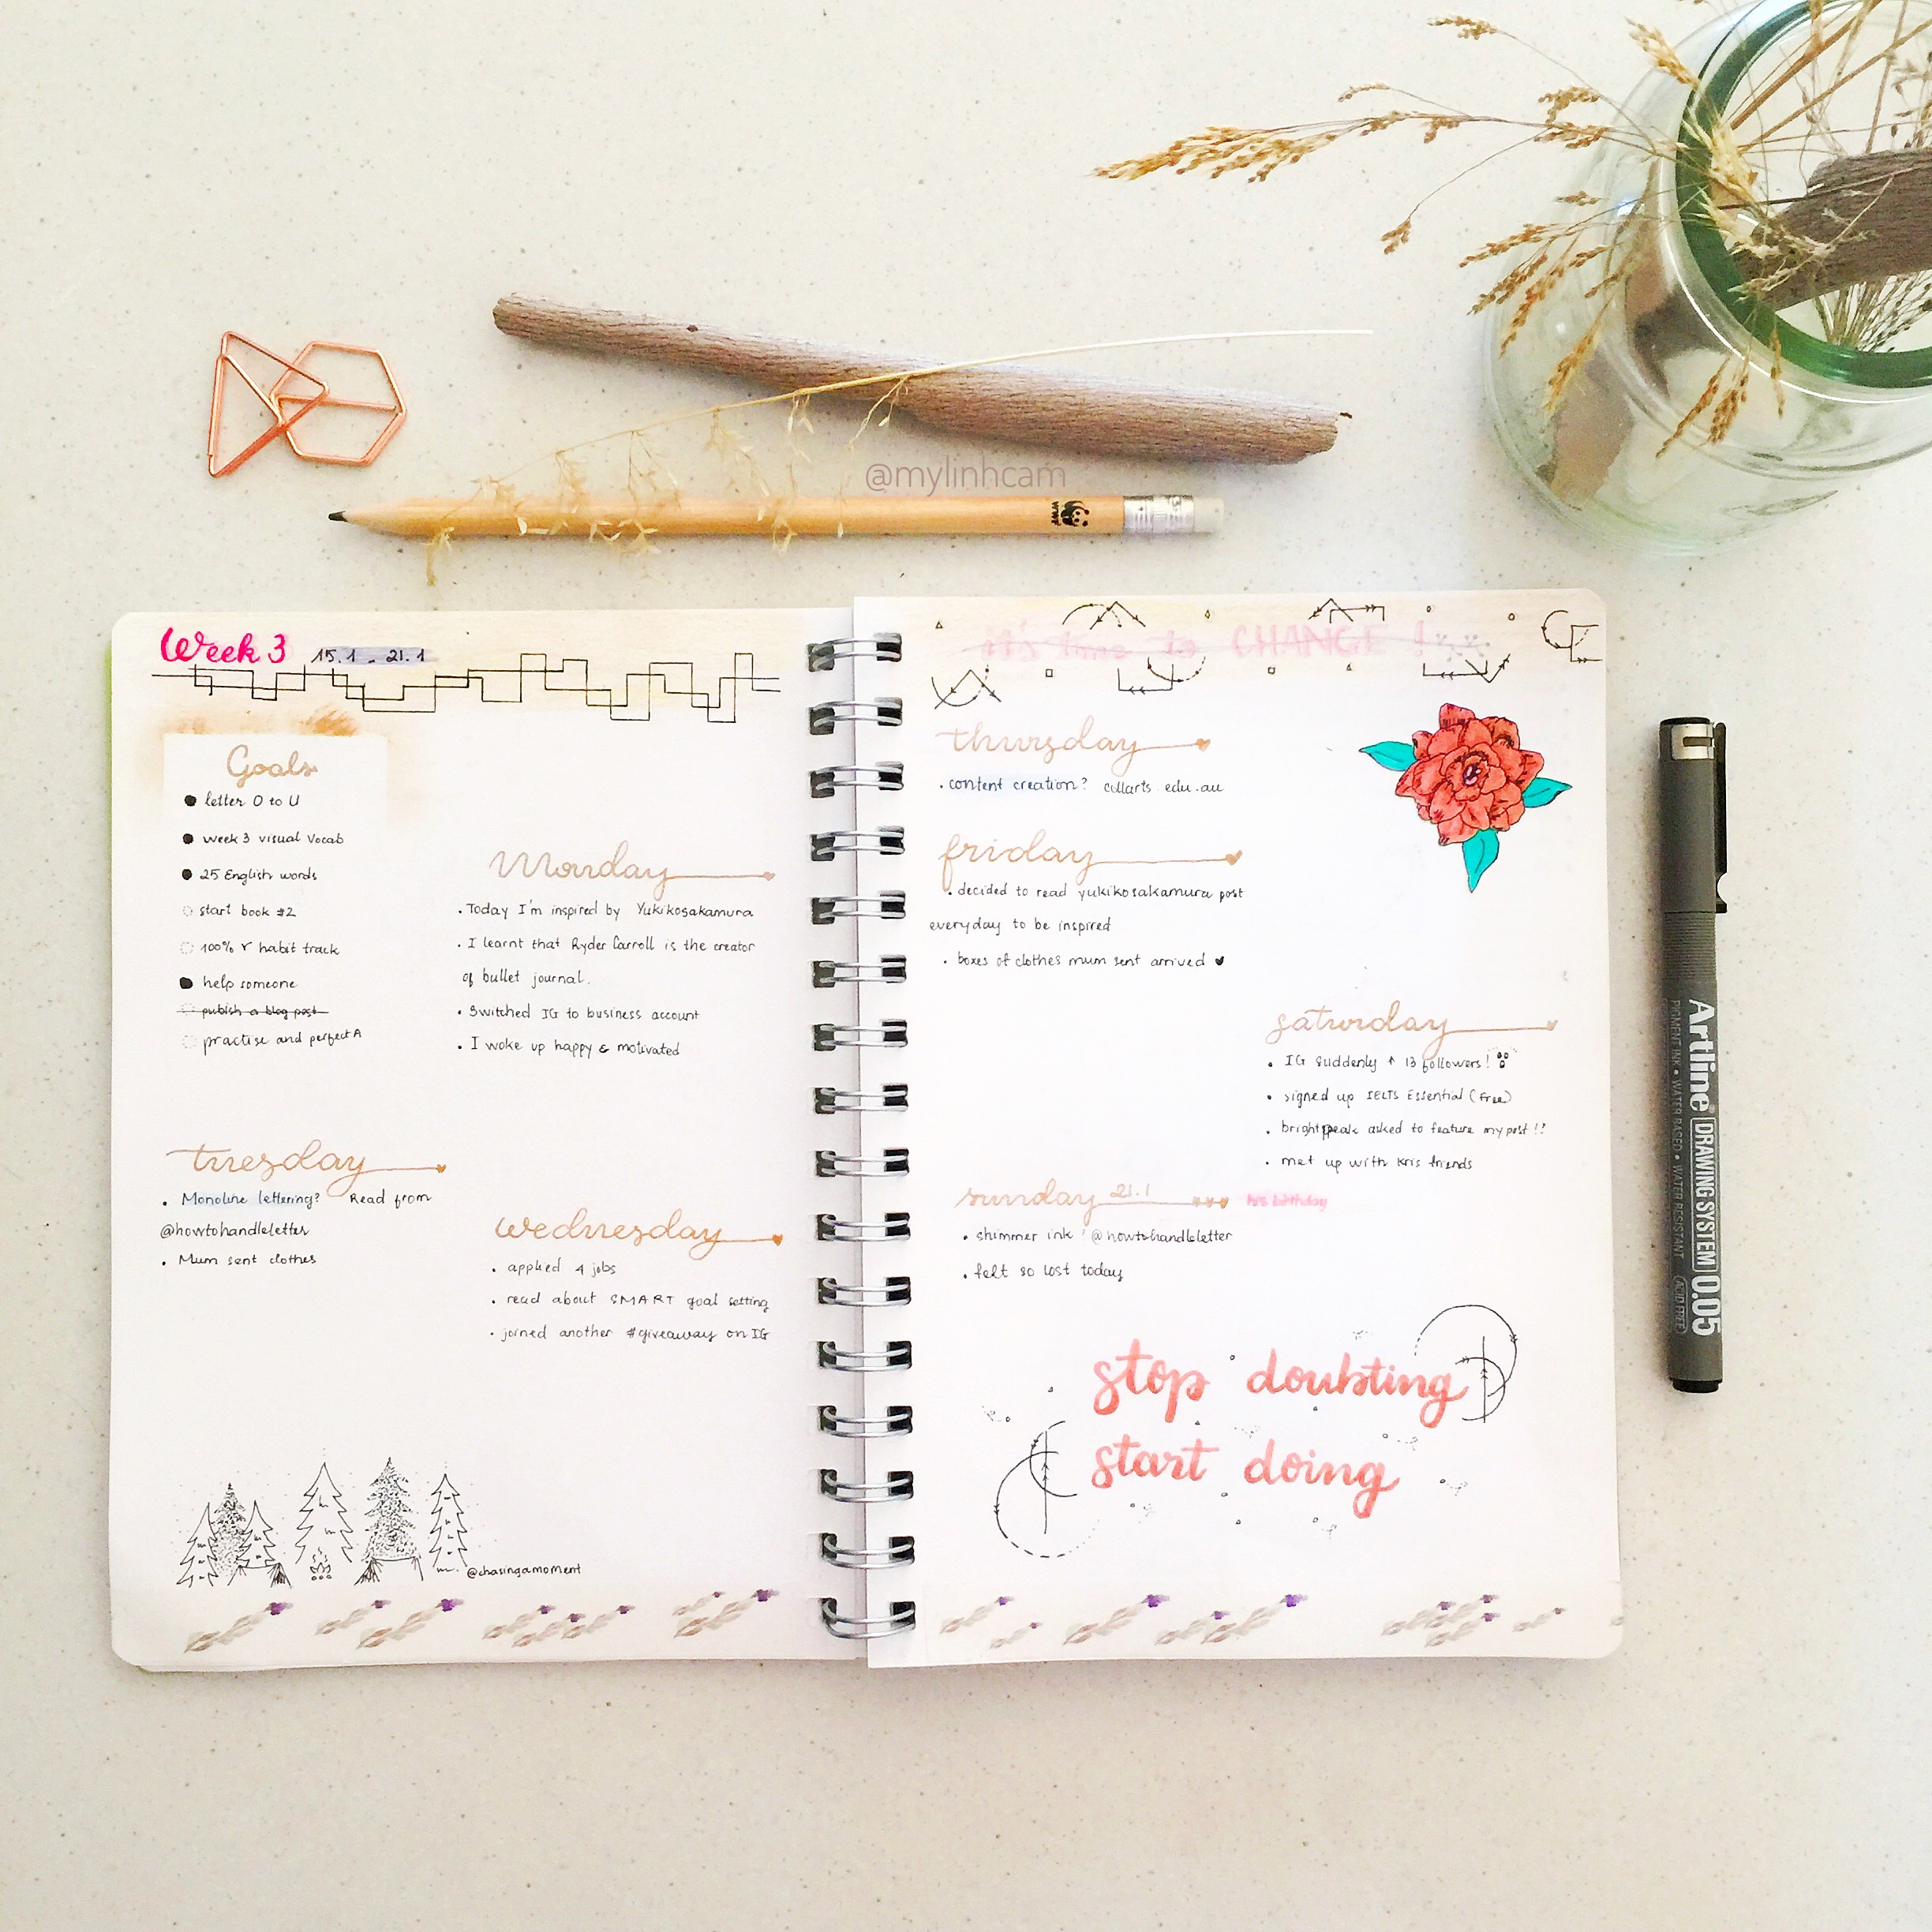 @mylinhcam
WWF
Week 3 15.1 - 21.1
Goals
letter O to U
week 3 visual vocab
25 English words
start book #2
100% r habit track
help someone
publish a blog post
practise and perfect A
Monday
. Today I'm inspired by Yukikosakamura
. I learnt that Ryder Carroll is the creator
of bullet journal.
. Switched IG to business account
. I woke up happy & motivated
tuesday
. Monoline lettering? Read from
@howtohandleletter
. Mum sent clothes
wednesday
. applied 4 jobs
. read about SMART goal setting
. joined another #giveaway on IG
@chasingamoment
it's time to CHANGE !
thursday
. content creation? collarts.edu.au
friday
. decided to read yukikosakamura post
everyday to be inspired
. boxes of clothes mum sent arrived ♥
saturday
. IG suddenly ↑ 13 followers!
. signed up IELTS Essential (free)
. brightspeak asked to feature my post !!
. met up with Kris friends
sunday 21.1 birthday
. shimmer ink ! @howtohandleletter
. felt so lost today
stop doubting
start doing
Artline DRAWING SYSTEM 0.05
PIGMENT INK • WATER BASED • WATER RESISTANT ACID FREE